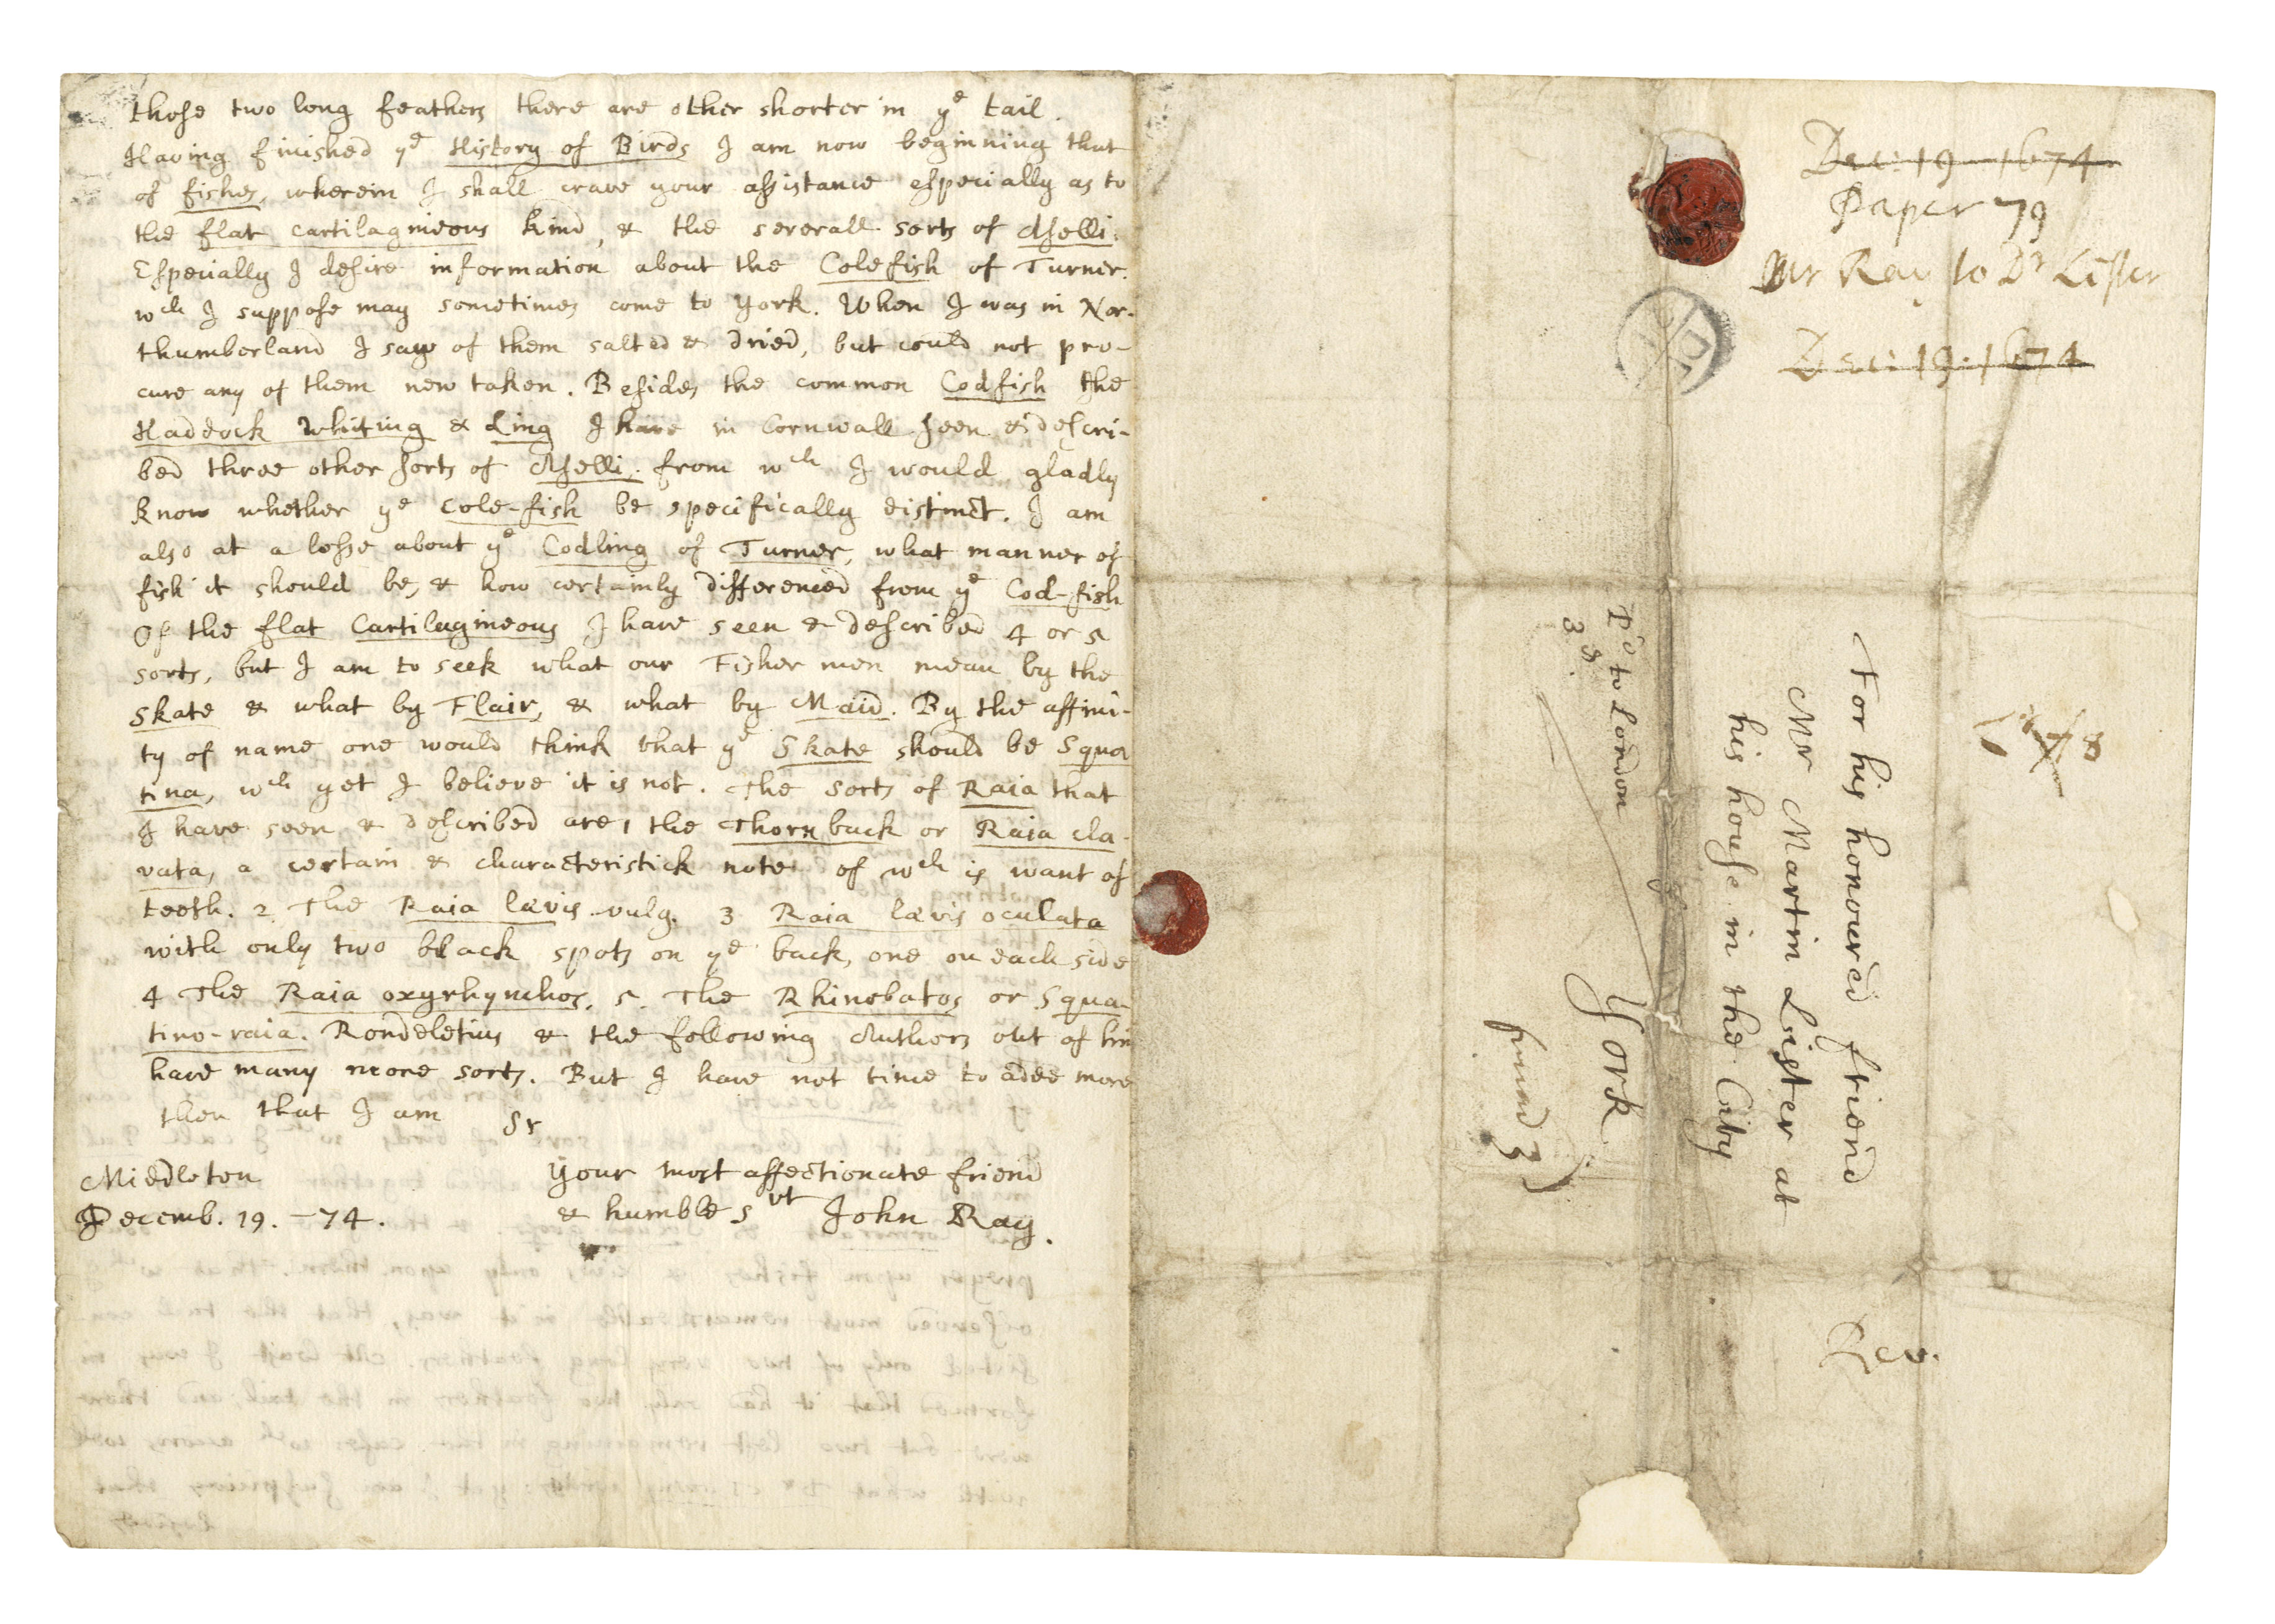 those two long feathers there are other shorter in yᵉ tail.
Having finished yᵉ History of Birds I am now beginning that
of fishes, wherein I shall crave your assistance especially as to
the flat cartilagineous kind, & the severall sorts of Aselli.
Especially I desire information about the Colefish of Turner.
wᶜʰ I suppose may sometimes come to York. When I was in Nor-
thumberland I saw of them salted & dried, but could not pro-
cure any of them new taken. Besides the common Codfish the
Haddock Whiting & Ling I have in Cornwall seen & descri-
bed three other sorts of Aselli, from wᶜʰ I would gladly
know whether yᵉ Cole-fish be specifically distinct. I am
also at a losse about yᵉ Codling of Turner, what manner of
fish it should be, & how certainly differenced from yᵉ Cod-fish
Of the flat Cartilagineous I have seen & described 4 or 5
sorts, but I am to seek what our Fisher men mean by the
Skate & what by Flair, & what by Maid. By the affini-
ty of name one would think that yᵉ Skate should be Squa
tina, wᶜʰ yet I believe it is not. The sorts of Raia that
I have seen & described are 1 the Thornback or Raia cla-
vata, a certain & characteristick note of wᶜʰ is want of
teeth. 2. The Raia lævis vulg. 3 Raia lævis oculata
with only two black spots on yᵉ back, one on each side
4 The Raia oxyrhynchos. 5. The Rhinobatos or Squa-
tino-raia. Rondeletius & the following Authors out of him
have many more sorts. But I have not time to adde more
then that I am Sr
Your most affectionate friend
& humble sᵛᵗ John Ray.
Middleton
Decemb. 19. -74.
Dec: 19 1674
Paper 79
Mr Ray to Dʳ Lister
Dec: 19: 1674
For his honoured friend
Mr Martin Lister at
his house in the City
York
Pᵈ to London
3ᵈ.
3
Rev.